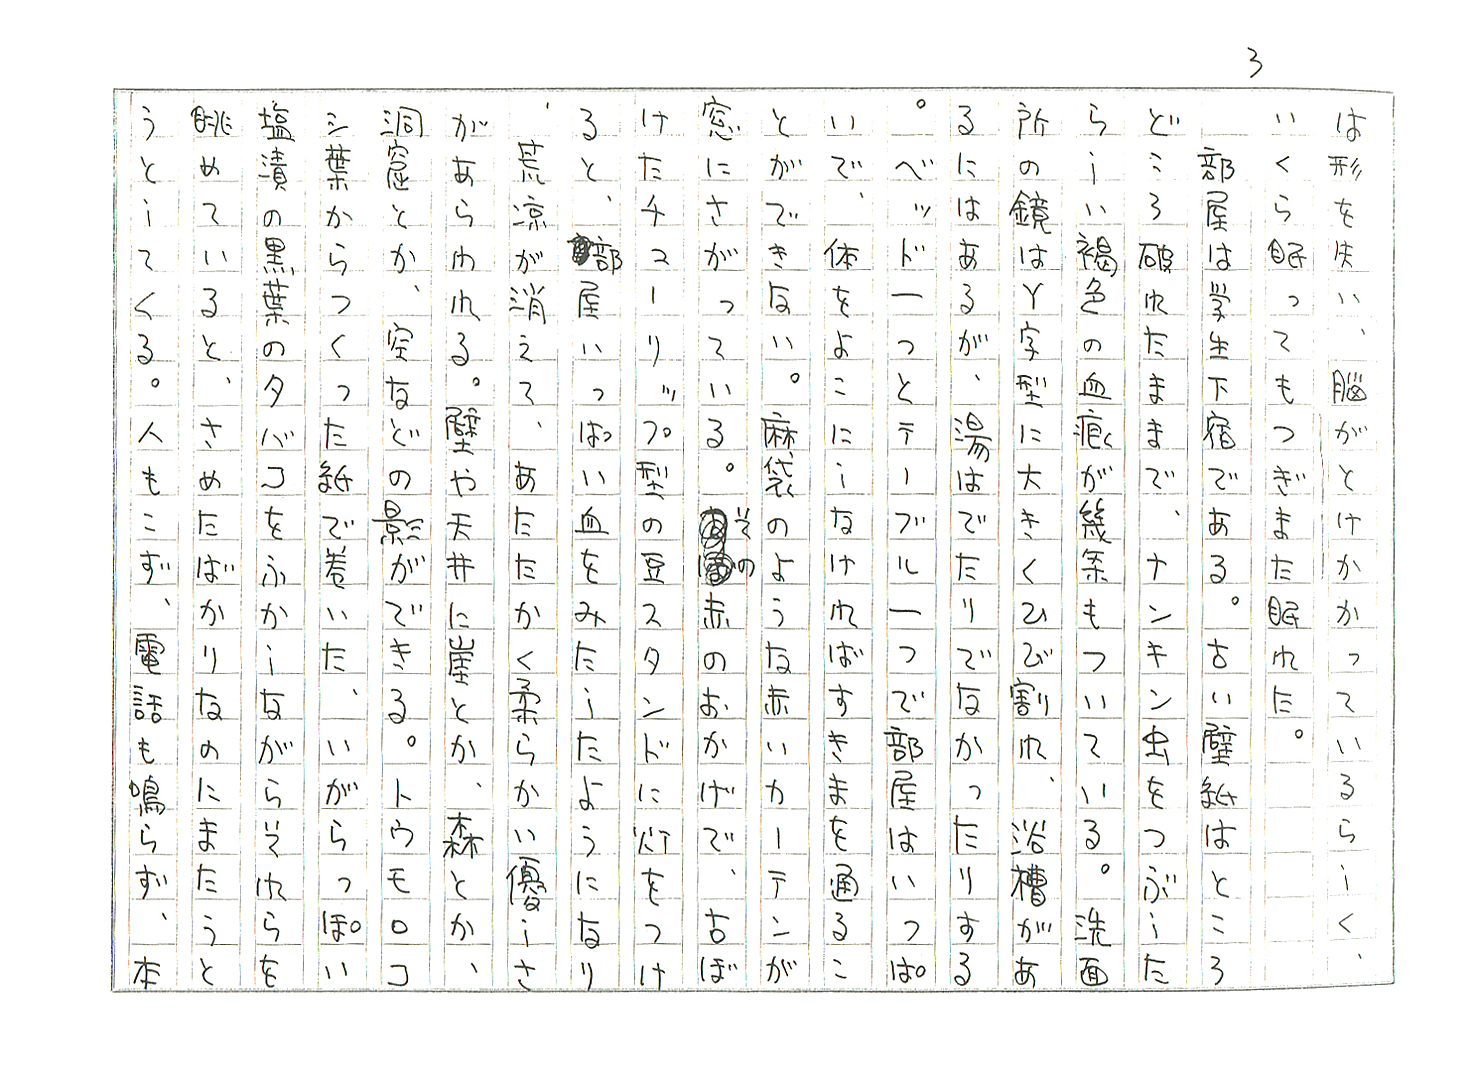 3
は形を失い、脳がとけかかっているらしく、
いくら眠ってもつぎまた眠れた。
部屋は学生下宿である。古い壁紙はところ
どころ破れたままで、ナンキン虫をつぶした
らしい褐色の血痕が幾条もついている。洗面
所の鏡はY字型に大きくひび割れ、浴槽があ
るにはあるが、湯はでたりでなかったりする
。ベッド一つとテーブル一つで部屋はいっぱ
いで、体をよこにしなければすきまを通るこ
とができない。麻袋のような赤いカーテンが
窓にさがっている。その赤のおかげで、古ぼ
けたチューリップ型の豆スタンドに灯をつけ
ると、部屋いっぱい血をみたしたようになり
、荒涼が消えて、あたたかく柔らかい優しさ
があらわれる。壁や天井に崖とか、森とか、
洞窟とか、空などの影ができる。トウモロコ
シ葉からつくった紙で巻いた、いがらっぽい
塩漬の黒葉のタバコをふかしながらそれらを
眺めていると、さめたばかりなのにまたうと
うとしてくる。人もこず、電話も鳴らず、本